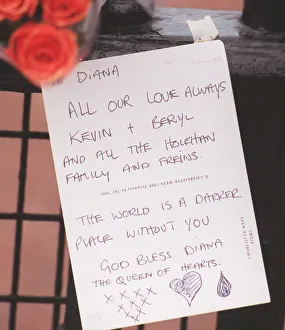 DIANA
ALL OUR LOVE ALWAYS
KEVIN + BERYL
AND ALL THE HOLEHAN
FAMILY AND FREINS.
THE WORLD IS A DARKER
PLACE WITHOUT YOU
GOD BLESS DIANA
THE QUEEN OF HEARTS.
x x x x
x x x
x x x
x x